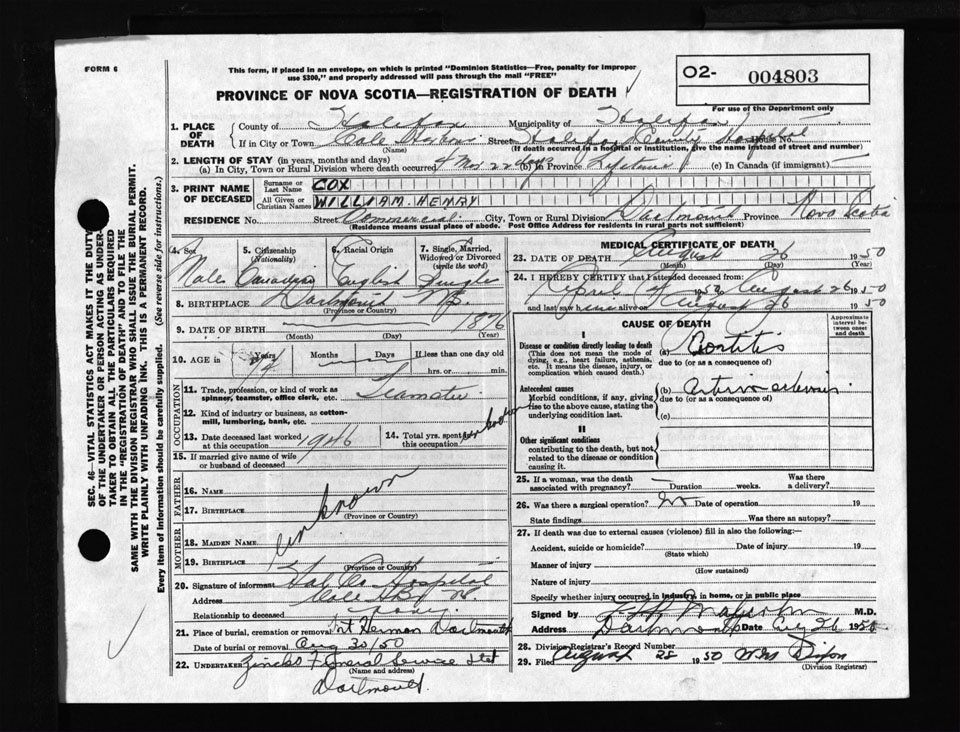 FORM 6
This form, if placed in an envelope, on which is printed "Dominion Statistics—Free, penalty for improper
use $300," and properly addressed will pass through the mail "FREE"
PROVINCE OF NOVA SCOTIA—REGISTRATION OF DEATH
O2- 004803
For use of the Department only
SEC. 46—VITAL STATISTICS ACT MAKES IT THE DUTY
OF THE UNDERTAKER OR PERSON ACTING AS UNDER-
TAKER TO OBTAIN ALL THE PARTICULARS REQUIRED
IN THE "REGISTRATION OF DEATH" AND TO FILE THE
SAME WITH THE DIVISION REGISTRAR WHO SHALL ISSUE THE BURIAL PERMIT.
WRITE PLAINLY WITH UNFADING INK. THIS IS A PERMANENT RECORD.
Every item of information should be carefully supplied. (See reverse side for instructions.)
1. PLACE OF DEATH
County of Halifax Municipality of Halifax
If in City or Town Cole Harbour Street Halifax County Hospital House No.
(Name) (If death occurred in a hospital or institution, give the name instead of street and number)
2. LENGTH OF STAY (in years, months and days)
(a) In City, Town or Rural Division where death occurred 4 Mos 22 days (b) In Province Lifetime (c) In Canada (if immigrant)
3. PRINT NAME OF DECEASED
Surname or Last Name COX
All Given or Christian Names WILLIAM HENRY
RESIDENCE No. Street Commercial City, Town or Rural Division Dartmouth Province Nova Scotia
(Residence means usual place of abode. Post Office Address for residents in rural parts not sufficient)
4. Sex Male
5. Citizenship (Nationality) Canadian
6. Racial Origin English
7. Single, Married, Widowed or Divorced (write the word) Single
8. BIRTHPLACE Dartmouth N.S.
(Province or Country)
9. DATE OF BIRTH 1876
(Month) (Day) (Year)
10. AGE in Years 74 Months Days If less than one day old
hrs. or min.
OCCUPATION
11. Trade, profession, or kind of work as spinner, teamster, office clerk, etc. Teamster
12. Kind of industry or business, as cotton-mill, lumbering, bank, etc.
13. Date deceased last worked at this occupation 1946
14. Total yrs. spent in this occupation unknown
15. If married give name of wife or husband of deceased
FATHER
16. Name
17. Birthplace
(Province or Country)
MOTHER
18. Maiden Name
19. Birthplace
(Province or Country)
unknown
20. Signature of informant Hal Co. Hospital
Address Cole Hbr N.S.
Relationship to deceased
21. Place of burial, cremation or removal Mt Hermon Dartmouth
Date of burial or removal Aug 30/50
22. Undertaker Zincks Funeral Service
(Name and address)
Dartmouth.
MEDICAL CERTIFICATE OF DEATH
23. DATE OF DEATH August 26 1950
(Month) (Day) (Year)
24. I HEREBY CERTIFY that I attended deceased from:
April 4 1950 to August 26 1950
and last saw him alive on August 26 1950
CAUSE OF DEATH
Approximate interval between onset and death
I
Disease or condition directly leading to death
(This does not mean the mode of dying, e.g., heart failure, asthenia, etc. It means the disease, injury, or complication which caused death.)
(a) Aortitis
due to (or as a consequence of)
Antecedent causes
Morbid conditions, if any, giving rise to the above cause, stating the underlying condition last.
(b) Arteriosclerosis
due to (or as a consequence of)
(c)
II
Other significant conditions
contributing to the death, but not related to the disease or condition causing it.
25. If a woman, was the death associated with pregnancy? Duration weeks. Was there a delivery?
26. Was there a surgical operation? No Date of operation 19
State findings Was there an autopsy?
27. If death was due to external causes (violence) fill in also the following:—
Accident, suicide or homicide? Date of injury 19
(State which)
Manner of injury
(How sustained)
Nature of injury
Specify whether injury occurred in industry, in home, or in public place
Signed by Malcolm M.D.
Address Dartmouth Date Aug 26 1950
28. Division Registrar's Record Number
29. Filed August 28 1950 Dixon
(Division Registrar)